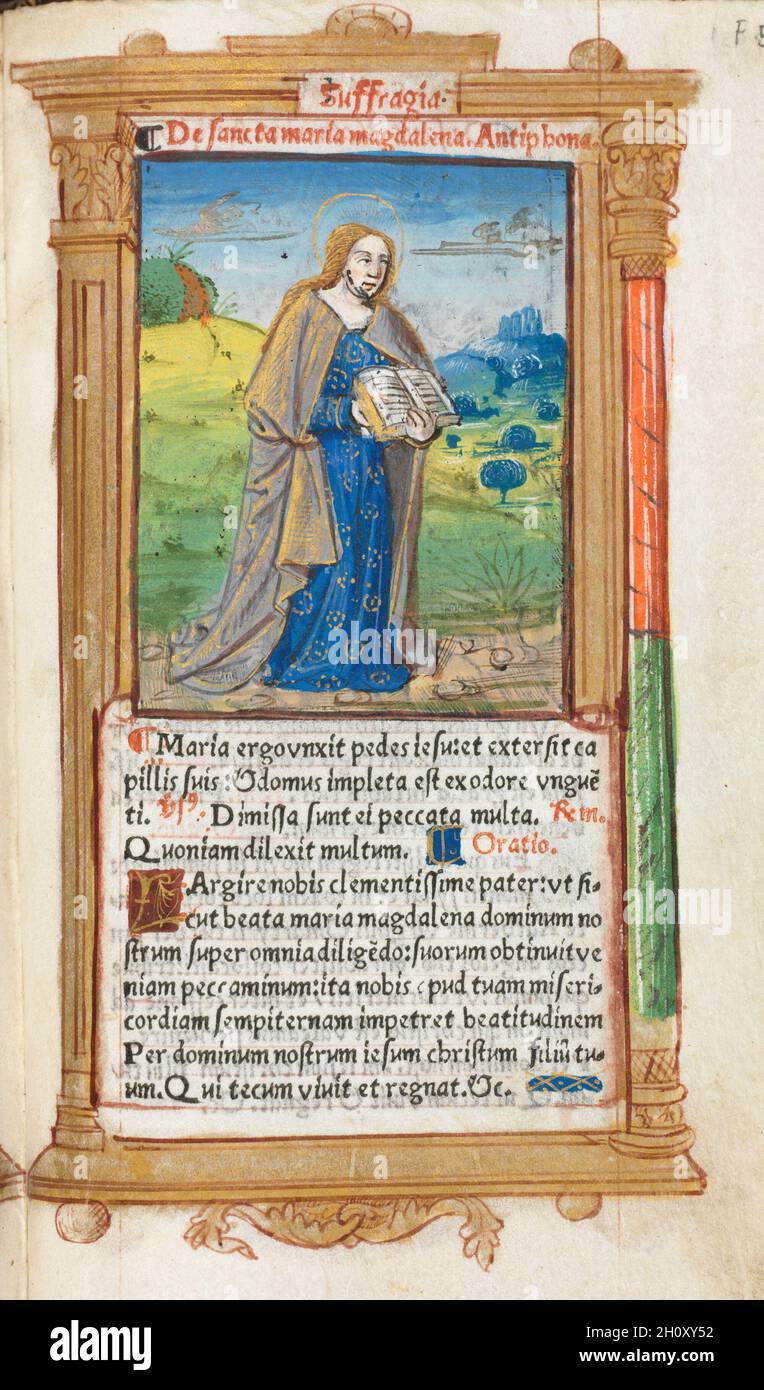 Suffragia.
De sancta maria magdalena. Antiphona.
Maria ergo vnxit pedes iesu: et extersit ca
pillis suis: & domus impleta est ex odore vnguē
ti. Dimissa sunt ei peccata multa. Rem.
Quoniam dilexit multum. Oratio.
LArgire nobis clementissime pater: vt si-
cut beata maria magdalena dominum no
strum super omnia diligēdo: suorum obtinuit ve
niam peccaminum: ita nobis apud tuam miseri-
cordiam sempiternam impetret beatitudinem
Per dominum nostrum iesum christum filiū tu-
um. Qui tecum viuit et regnat. &c.
alamy
alamy
Image ID: 2H0XY52
www.alamy.com